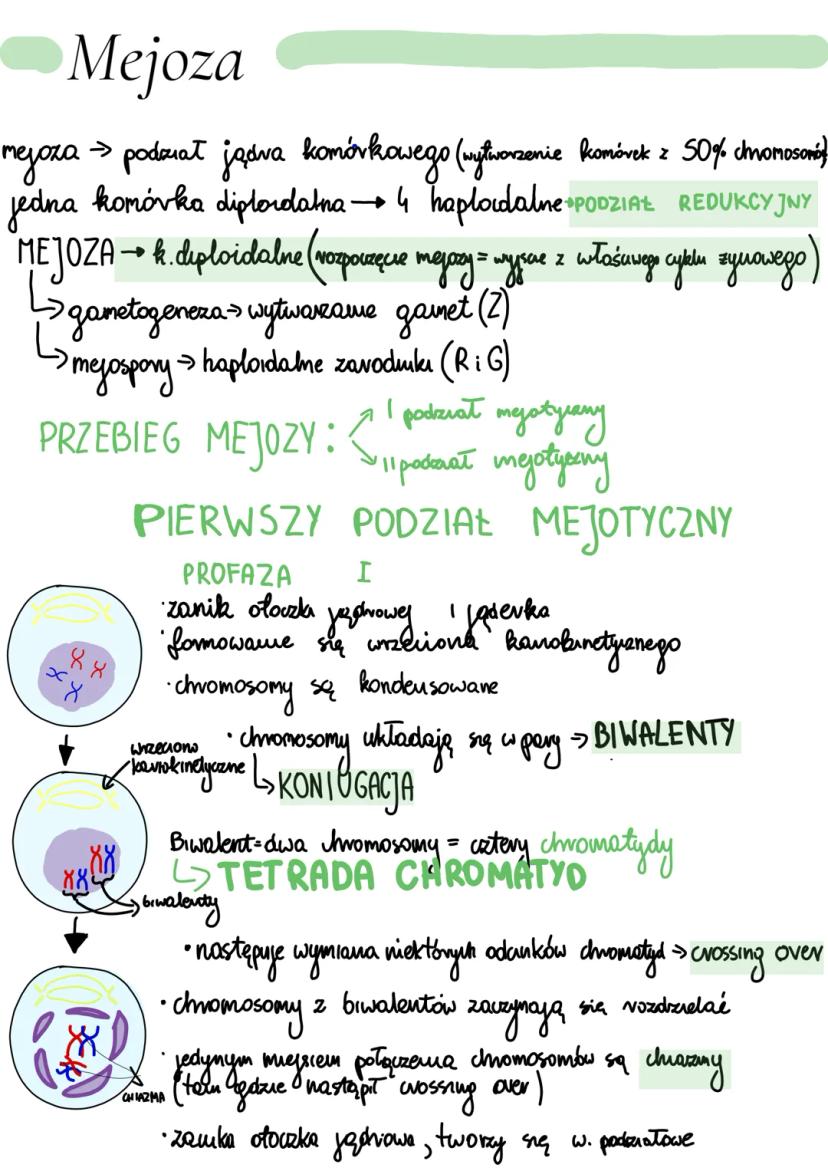 Mejoza
mejoza → podział jądra komórkowego (wytworzenie komórek z 50% chromosomów)
jedna komórka diploidalna → 4 haploidalne → PODZIAŁ REDUKCYJNY
MEJOZA → k. diploidalne (rozpoczęcie mejozy = wyjście z właściwego cyklu życiowego)
↳ gametogeneza → wytwarzanie gamet (Z)
↳ mejospory → haploidalne zarodniki (R i G)
PRZEBIEG MEJOZY:
I podział mejotyczny
II podział mejotyczny
PIERWSZY PODZIAŁ MEJOTYCZNY
PROFAZA I
· zanik otoczki jądrowej i jąderka
· formowanie się wrzeciona kariokinetycznego
· chromosomy są kondensowane
wrzeciono
kariokinetyczne
· chromosomy układają się w pary → BIWALENTY
↳ KONIUGACJA
Biwalent = dwa chromosomy = cztery chromatydy
↳ TETRADA CHROMATYD
biwalenty
· następuje wymiana niektórych odcinków chromatyd → crossing over
· chromosomy z biwalentów zaczynają się rozdzielać
· jedynym miejscem połączenia chromosomów są chiazmy
(tam gdzie nastąpił crossing over)
CHIAZMA
· zanika otoczka jądrowa, tworzy się w. podziałowe